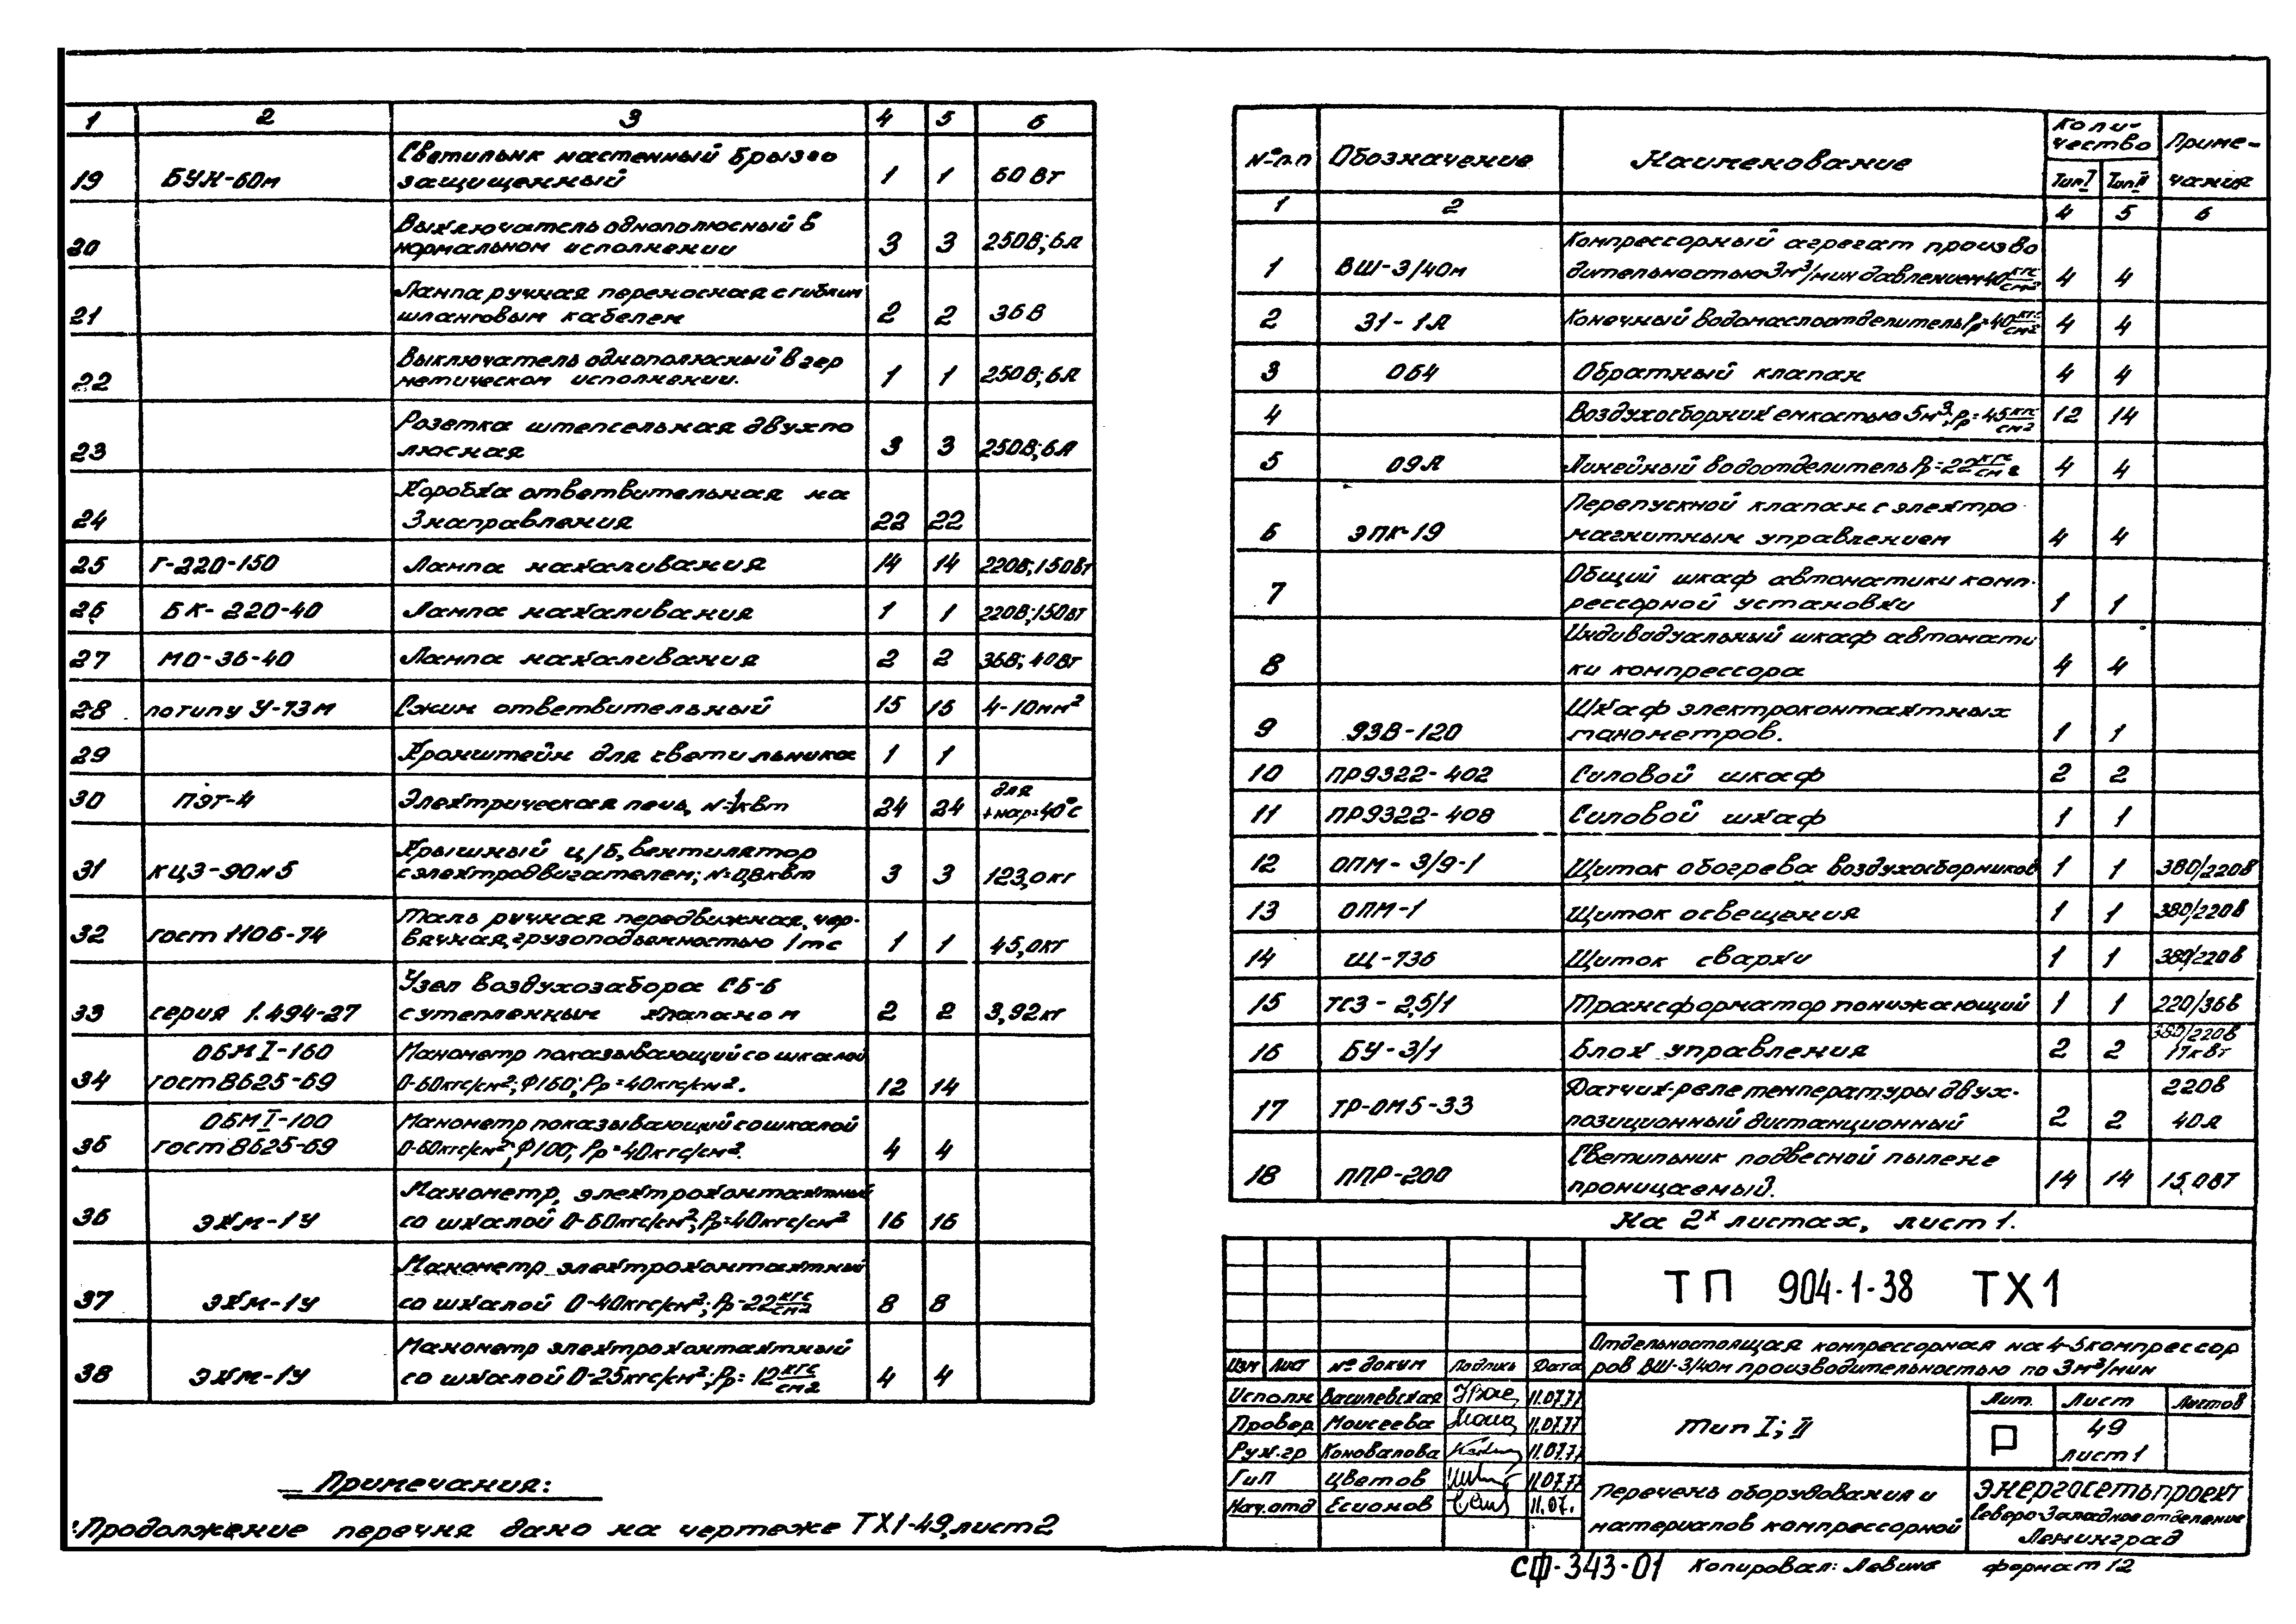 1 2 3 4 5 6
19 БУН-60м Светильнк настенный брызго защищенный 1 1 60 Вт
20 Выключатель однополюсный в нормальном исполнении 3 3 250В; 6А
21 Лампа ручная переносная с гибким шланговым кабелем 2 2 36В
22 Выключатель однополюсный в гер метическом исполнении. 1 1 250В; 6А
23 Розетка штепсельная двухпо люсная 3 3 250В; 6А
24 Коробка ответвительная на 3 направления 22 22
25 Г-220-150 Лампа накаливания 14 14 220В; 150Вт
26 БК-220-40 Лампа накаливания 1 1 220В; 150Вт
27 МО-36-40 Лампа накаливания 2 2 36В; 40Вт
28 по типу У-73м Сжим ответвительный 15 15 4-10мм²
29 Кронштейн для светильника 1 1
30 ПЭТ-4 Электрическая печь, N=1квт 24 24 для tнар=40°С
31 КЦ3-90№5 Крышный ц/б, вентилятор с электродвигателем; N=0,8квт 3 3 123,0кг
32 гост 1106-74 Таль ручная передвижная, чер- вячная, грузоподъемностью 1тс 1 1 45,0кг
33 серия 1.494-27 Узел воздухозабора СБ-6 с утепленным клапаном 2 2 3,92кг
34 ОБМ I-160 гост 8625-69 Манометр показывающий со шкалой 0-60кгс/см²; Ф160; Рр=40кгс/см². 12 14
35 ОБМ I-100 гост 8625-69 Манометр показывающий со шкалой 0-60кгс/см²; Ф100; Рр=40кгс/см². 4 4
36 ЭКМ-1У Манометр, электроконтактный со шкалой 0-60кгс/см²; Рр=40кгс/см² 16 16
37 ЭКМ-1У Манометр электроконтактный со шкалой 0-40кгс/см²; Рр=22 кгс/см2 8 8
38 ЭКМ-1У Манометр электроконтактный со шкалой 0-25кгс/см²; Рр=12 кгс/см2 4 4
Примечания:
Продолжение перечня дано на чертеже ТХ1-49, лист 2
№ п.п Обозначение Наименование Коли- чество Тип I Тип II Приме- чания
1 2 4 5 6
1 ВШ-3/40м Компрессорный агрегат произво дительностью 3м³/мин давлением 40 кгс/см² 4 4
2 31-1А Конечный водомаслоотделитель Рр=40 кгс/см2 4 4
3 064 Обратный клапан 4 4
4 Воздухосборник емкостью 5м³, Рр=45 кгс/см2 12 14
5 09А Линейный водоотделитель Рр=22 кгс/см2 4 4
6 ЭПК-19 Перепускной клапан с электро магнитным управлением 4 4
7 Общий шкаф автоматики комп- рессорной установки 1 1
8 Индивидуальный шкаф автомати ки компрессора 4 4
9 93В-120 Шкаф электроконтактных манометров. 1 1
10 ПР9322-402 Силовой шкаф 2 2
11 ПР9322-408 Силовой шкаф 1 1
12 ОПМ-3/9-1 Щиток обогрева воздухосборников 1 1 380/220В
13 ОПМ-1 Щиток освещения 1 1 380/220В
14 Щ-736 Щиток сварки 1 1 380/220В
15 ТСЗ-2,5/1 Трансформатор понижающий 1 1 220/36В
16 БУ-3/1 Блок управления 2 2 380/220В 17кВт
17 ТР-ОМ5-33 Датчик-реле температуры двух- позиционный дистанционный 2 2 220В 40А
18 ППР-200 Светильник подвесной пылене проницаемый. 14 14 150Вт
На 2х листах, лист 1.
ТП 904-1-38 ТХ1
Отдельностоящая компрессорная на 4-5 компрессор
ров ВШ-3/40м производительностью по 3м³/мин
Изм Лист № докум Подпись Дата
Исполн Василевская 11.07.77
Провер Моисеева 11.07.77
Рук.гр Коновалова 11.07.77
ГиП Цветов 11.07.77
Нач.отд Есионов 11.07.
Тип I; II
Лит. Лист Листов
Р 49 лист 1
Перечень оборудования и
материалов компрессорной
Энергосетьпроект
Северо-Западное отделение
Ленинград
СФ-343-01 Копировал: Левина формат 12